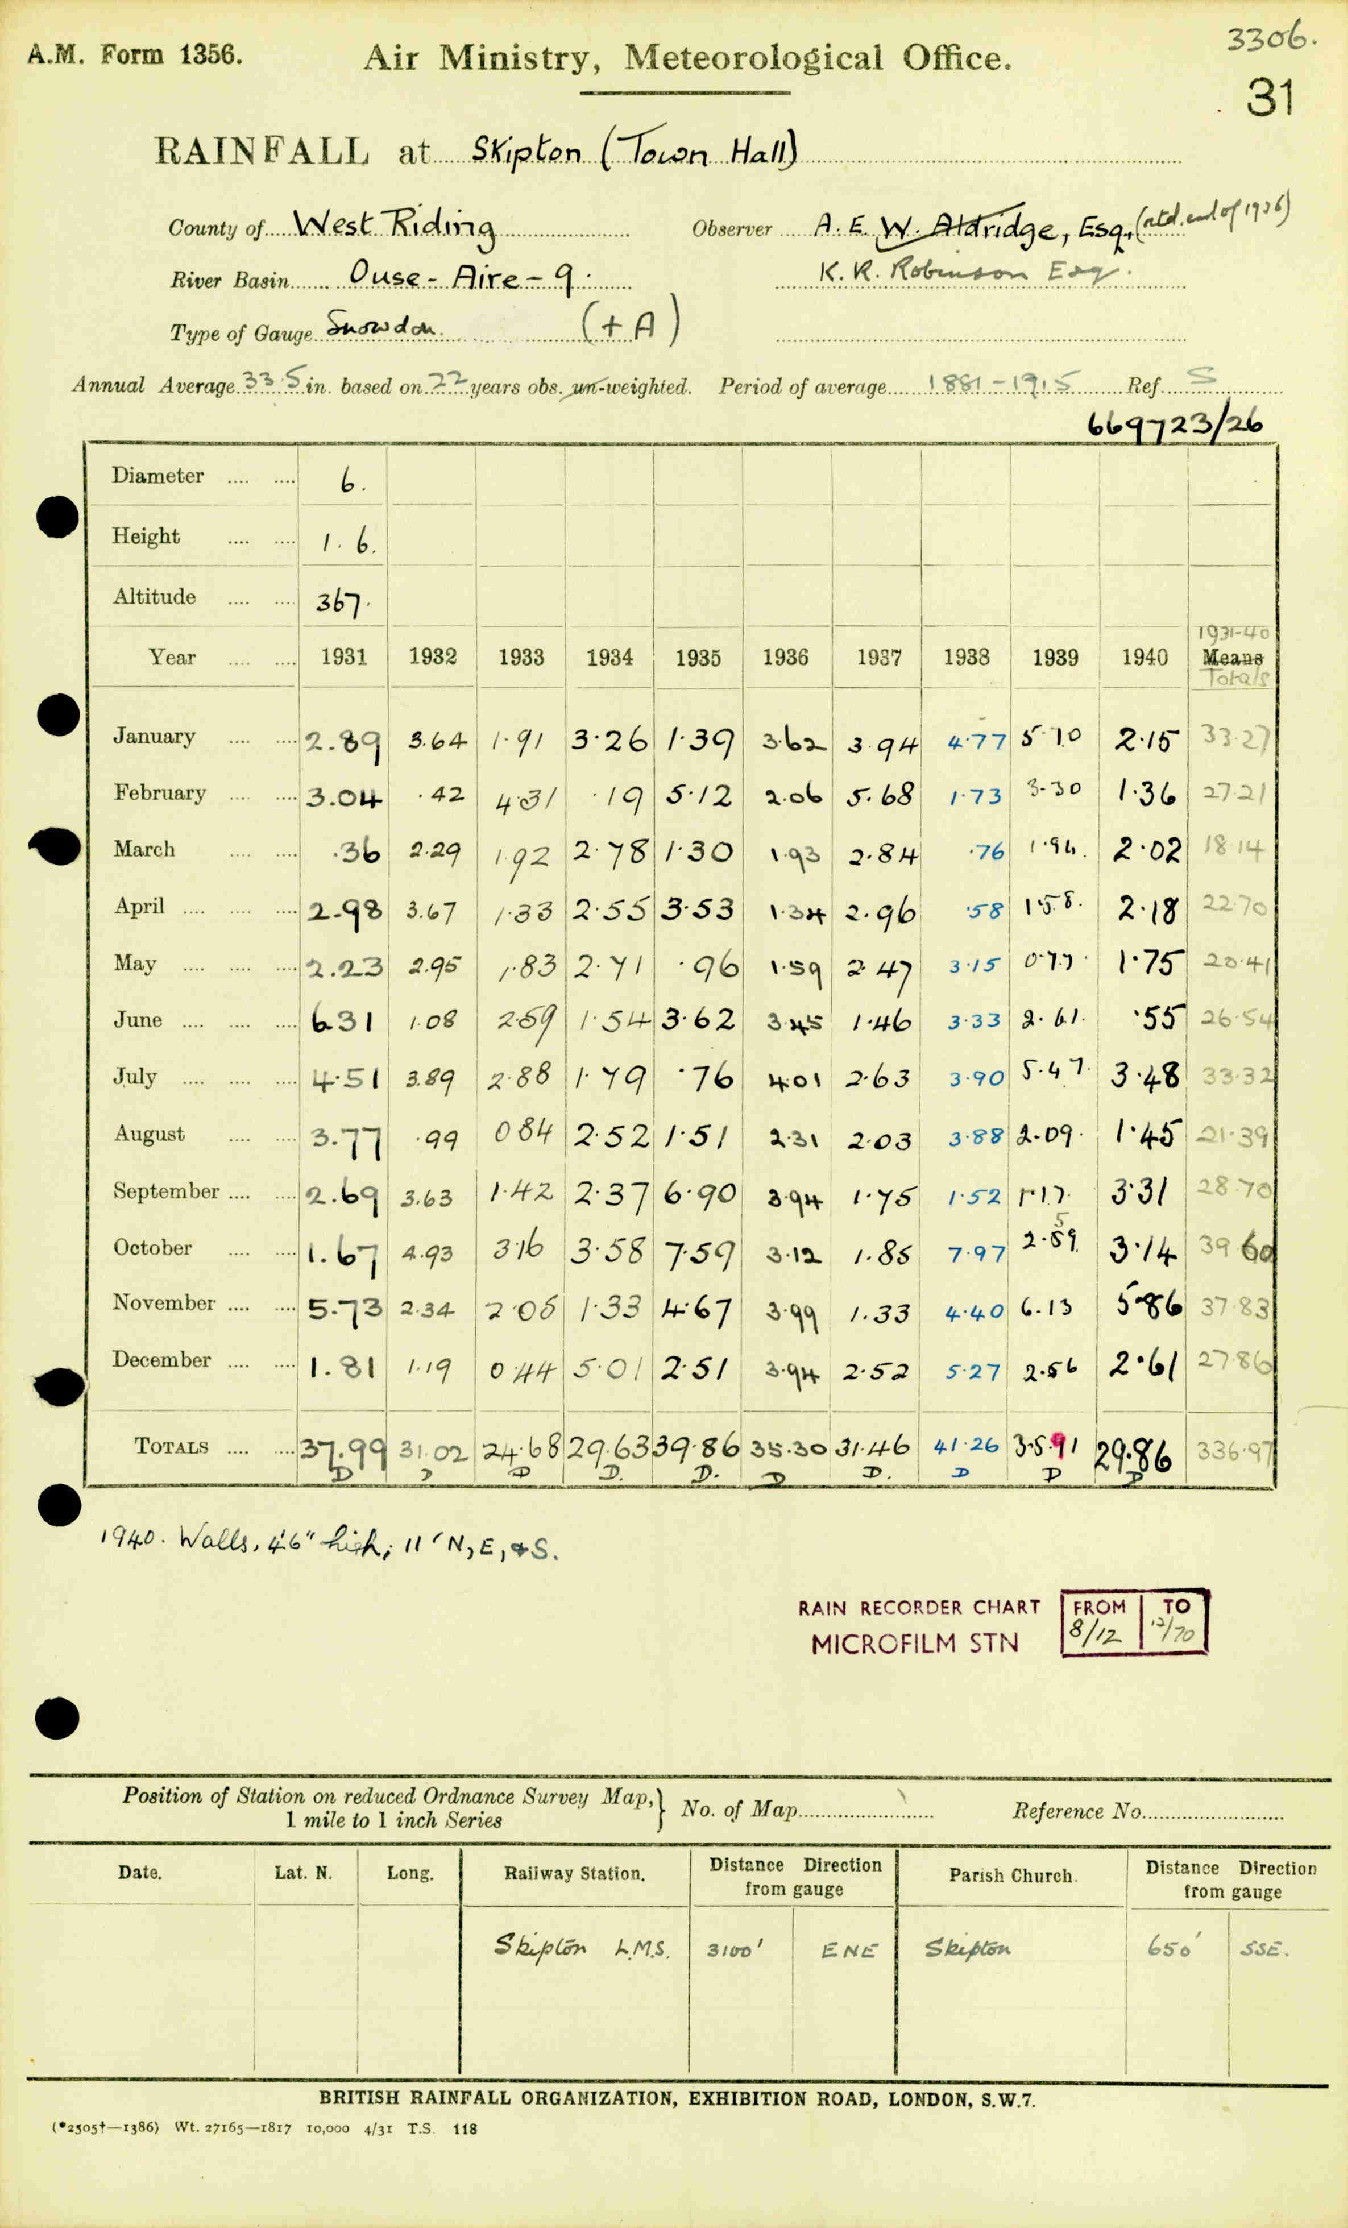 3306.
A.M. Form 1356. Air Ministry, Meteorological Office.
31
RAINFALL at Skipton (Town Hall)
County of West Riding Observer A. E. W. Aldridge, Esq. (retd. end of 1936)
River Basin Ouse - Aire - 9. K. R. Robinson Esq.
Type of Gauge Snowdon. (+ A)
Annual Average 33.5 in. based on 22 years obs. un-weighted. Period of average 1881-1915 Ref. S
669723/26
Diameter 6.
Height 1. 6.
Altitude 367.
1931-40
Year 1931 1932 1933 1934 1935 1936 1937 1938 1939 1940 Means
Totals
January 2.89 3.64 1.91 3.26 1.39 3.62 3.94 4.77 5.70 2.15 33.27
February 3.04 .42 4.31 .19 5.12 2.06 5.68 1.73 3.30 1.36 27.21
March .36 2.29 1.92 2.78 1.30 1.93 2.84 .76 1.94. 2.02 18.14
April 2.98 3.67 1.33 2.55 3.53 1.34 2.96 .58 1.58. 2.18 22.70
May 2.23 2.95 1.83 2.71 .96 1.59 2.47 3.15 0.77. 1.75 20.41
June 6.31 1.08 2.59 1.54 3.62 3.45 1.46 3.33 2.61. .55 26.54
July 4.51 3.89 2.88 1.79 .76 4.01 2.63 3.90 5.47. 3.48 33.32
August 3.77 .99 0.84 2.52 1.51 2.31 2.03 3.88 2.09. 1.45 21.39
September 2.69 3.63 1.42 2.37 6.90 3.94 1.75 1.52 1.17. 3.31 28.70
5
October 1.67 4.93 3.16 3.58 7.59 3.12 1.85 7.97 2.59 3.14 39.60
November 5.73 2.34 2.05 1.33 4.67 3.99 1.33 4.40 6.13 5.86 37.83
December 1.81 1.19 0.44 5.01 2.51 3.94 2.52 5.27 2.56 2.61 27.86
TOTALS 37.99 31.02 24.68 29.63 39.86 35.30 31.46 41.26 35.91 29.86 336.97
D D D D. D. D D. D D D
1940. Walls, 4'6" high, 11' N, E, & S.
RAIN RECORDER CHART FROM TO
MICROFILM STN 8/12 12/70
Position of Station on reduced Ordnance Survey Map,} No. of Map Reference No.
1 mile to 1 inch Series
Date. Lat. N. Long. Railway Station. Distance Direction from gauge Parish Church. Distance Direction from gauge
Skipton L.M.S. 3100' ENE Skipton 650' SSE.
BRITISH RAINFALL ORGANIZATION, EXHIBITION ROAD, LONDON, S.W.7.
(*2505†—1386) Wt. 27165—1817 10,000 4/31 T.S. 118